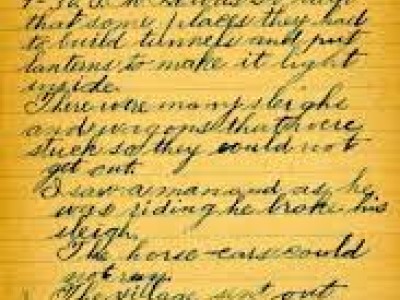 that some places they had
to build tunnels and put
lanterns to make it light
inside.
There were many sleighs
and wagons that were
stuck so they could not
get out.
I saw a man and as he
was riding he broke his
sleigh.
The horse-cars could
not run.
The village sent out